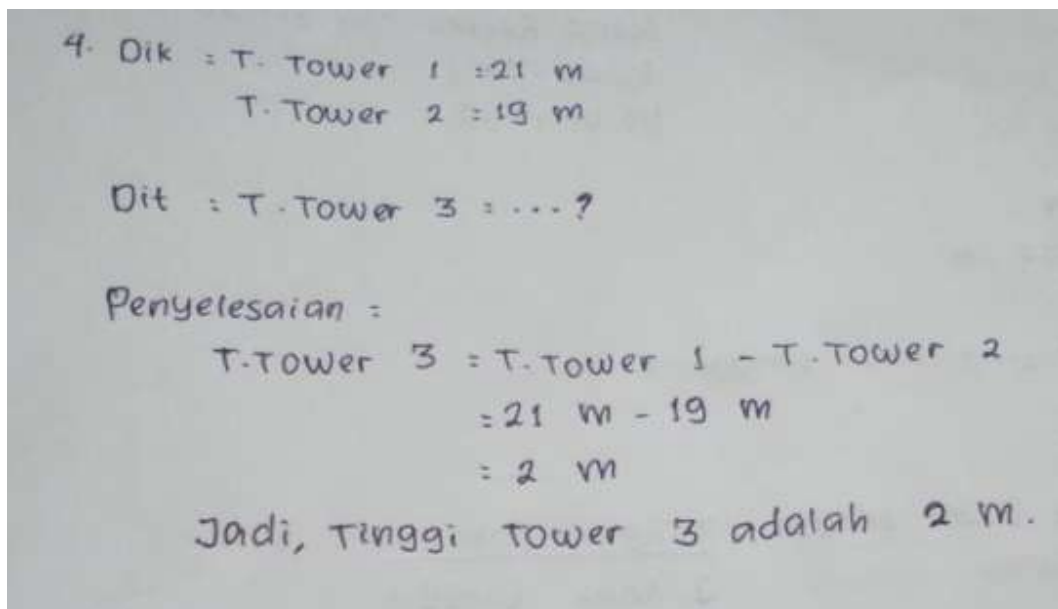 4. Dik : T. Tower 1 : 21 m
T. Tower 2 : 19 m
Dit : T. Tower 3 : ... ?
Penyelesaian :
T. Tower 3 : T. Tower 1 - T. Tower 2
: 21 m - 19 m
: 2 m
Jadi, Tinggi Tower 3 adalah 2 m.